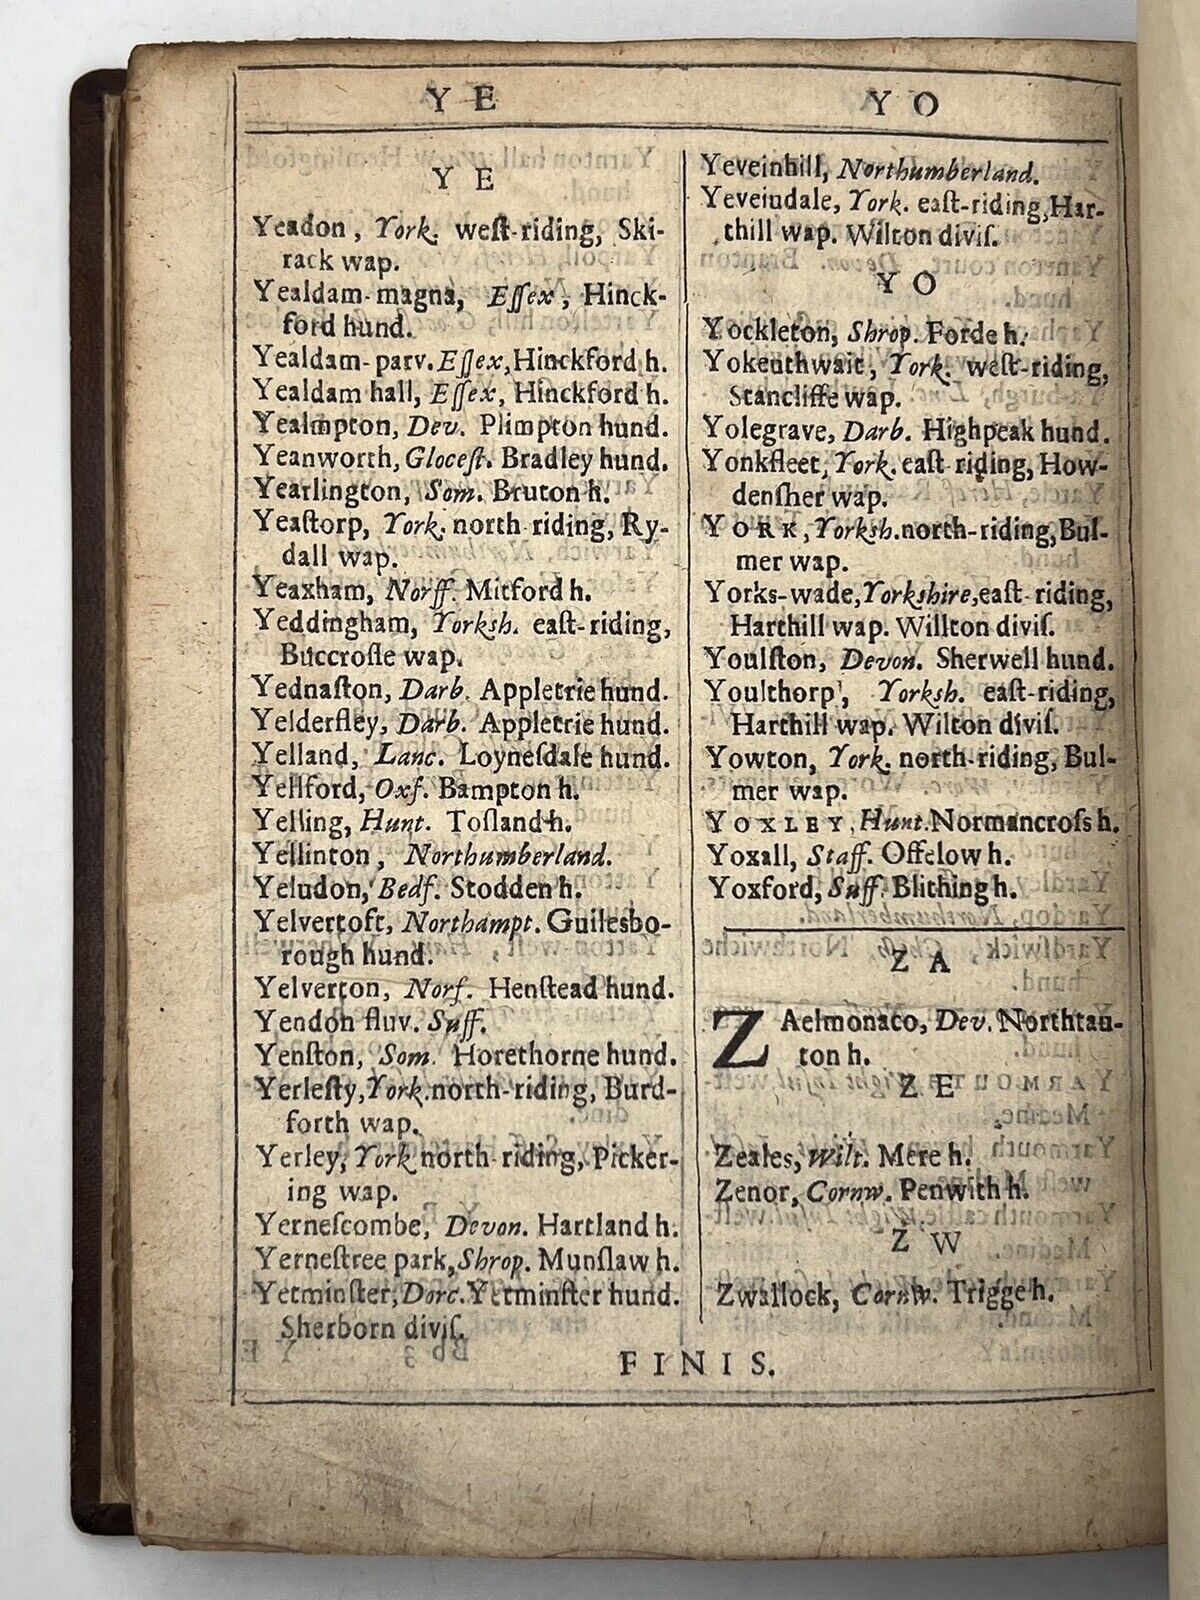 Y E
Y O
Y E
Yeadon, York. weſt-riding, Ski-
rack wap.
Yealdam-magna, Eſſex, Hinck-
ford hund.
Yealdam-parv. Eſſex, Hinckford h.
Yealdam hall, Eſſex, Hinckford h.
Yealmpton, Dev. Plimpton hund.
Yeanworth, Gloceſt. Bradley hund.
Yearlington, Som. Bruton h.
Yeaſtorp, York. north-riding, Ry-
dall wap.
Yeaxham, Norff. Mitford h.
Yeddingham, Yorksh. eaſt-riding,
Buccroſle wap.
Yednaſton, Darb. Appletrie hund.
Yelderſley, Darb. Appletrie hund.
Yelland, Lanc. Loyneſdale hund.
Yellford, Oxf. Bampton h.
Yelling, Hunt. Toſland h.
Yellinton, Northumberland.
Yeludon, Bedf. Stodden h.
Yelvertoft, Northampt. Guilesbo-
rough hund.
Yelverton, Norf. Henſtead hund.
Yendon fluv. Suff.
Yenſton, Som. Horethorne hund.
Yerleſty, York. north-riding, Burd-
forth wap.
Yerley, York north-riding, Picker-
ing wap.
Yerneſcombe, Devon. Hartland h.
Yerneſtree park, Shrop. Munſlaw h.
Yetminſter, Dorc. Yetminſter hund.
Sherborn diviſ.
Yeveinhill, Northumberland.
Yeveiudale, York. eaſt-riding, Har-
thill wap. Wilton diviſ.
Y O
Yockleton, Shrop. Forde h.
Yokeuthwait, York. weſt-riding,
Stancliffe wap.
Yolegrave, Darb. Highpeak hund.
Yonkfleet, York. eaſt-riding, How-
denſher wap.
YORK, Yorksh. north-riding, Bul-
mer wap.
Yorks-wade, Yorkshire, eaſt-riding,
Harthill wap. Willton diviſ.
Youlſton, Devon. Sherwell hund.
Youlthorp, Yorksh. eaſt-riding,
Harthill wap. Wilton diviſ.
Yowton, York. north-riding, Bul-
mer wap.
YOXLEY, Hunt. Normancroſs h.
Yoxall, Staff. Offelow h.
Yoxford, Suff. Blithing h.
Z A
ZAelmonaco, Dev. Northtau-
ton h.
Z E
Zeales, Wilt. Mere h.
Zenor, Cornw. Penwith h.
Z W
Zwallock, Cornw. Trigge h.
FINIS.